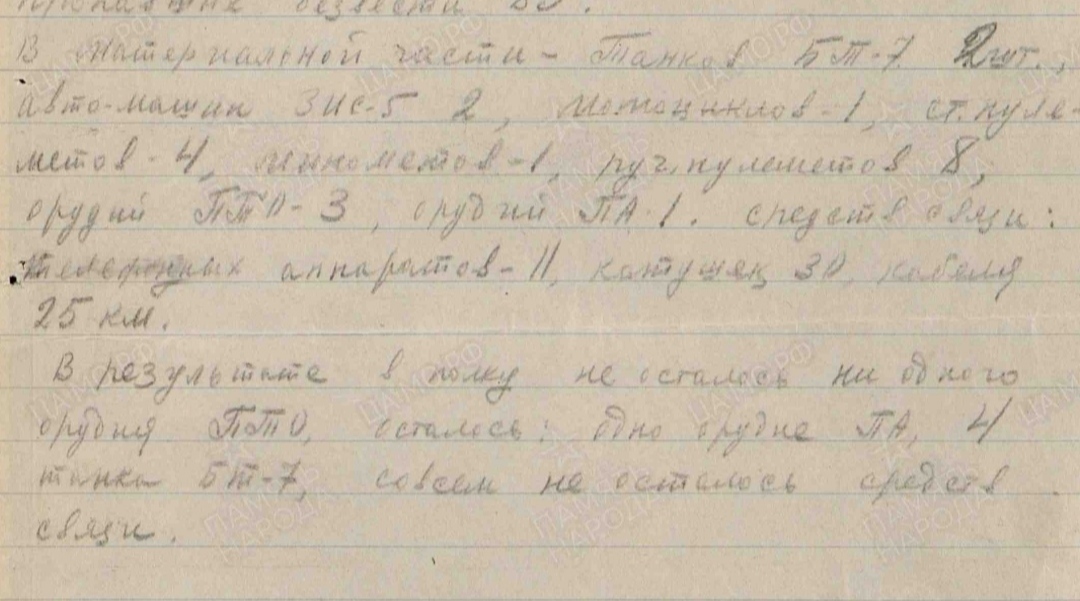 пропавшие безвести 80.
В материальной части - Танков БТ-7 2 шт.,
авто-машин ЗИС-5 2, мотоциклов - 1, ст. пуле-
метов - 4, минометов - 1, руч. пулеметов 8,
орудий ПТО - 3, орудий ПА - 1. средств связи:
телефонных аппаратов - 11, катушек 30, кабеля
25 км.
В результате в полку не осталось ни одного
орудия ПТО, осталось: одно орудие ПА, 4
танка БТ-7, совсем не осталось средств
связи.